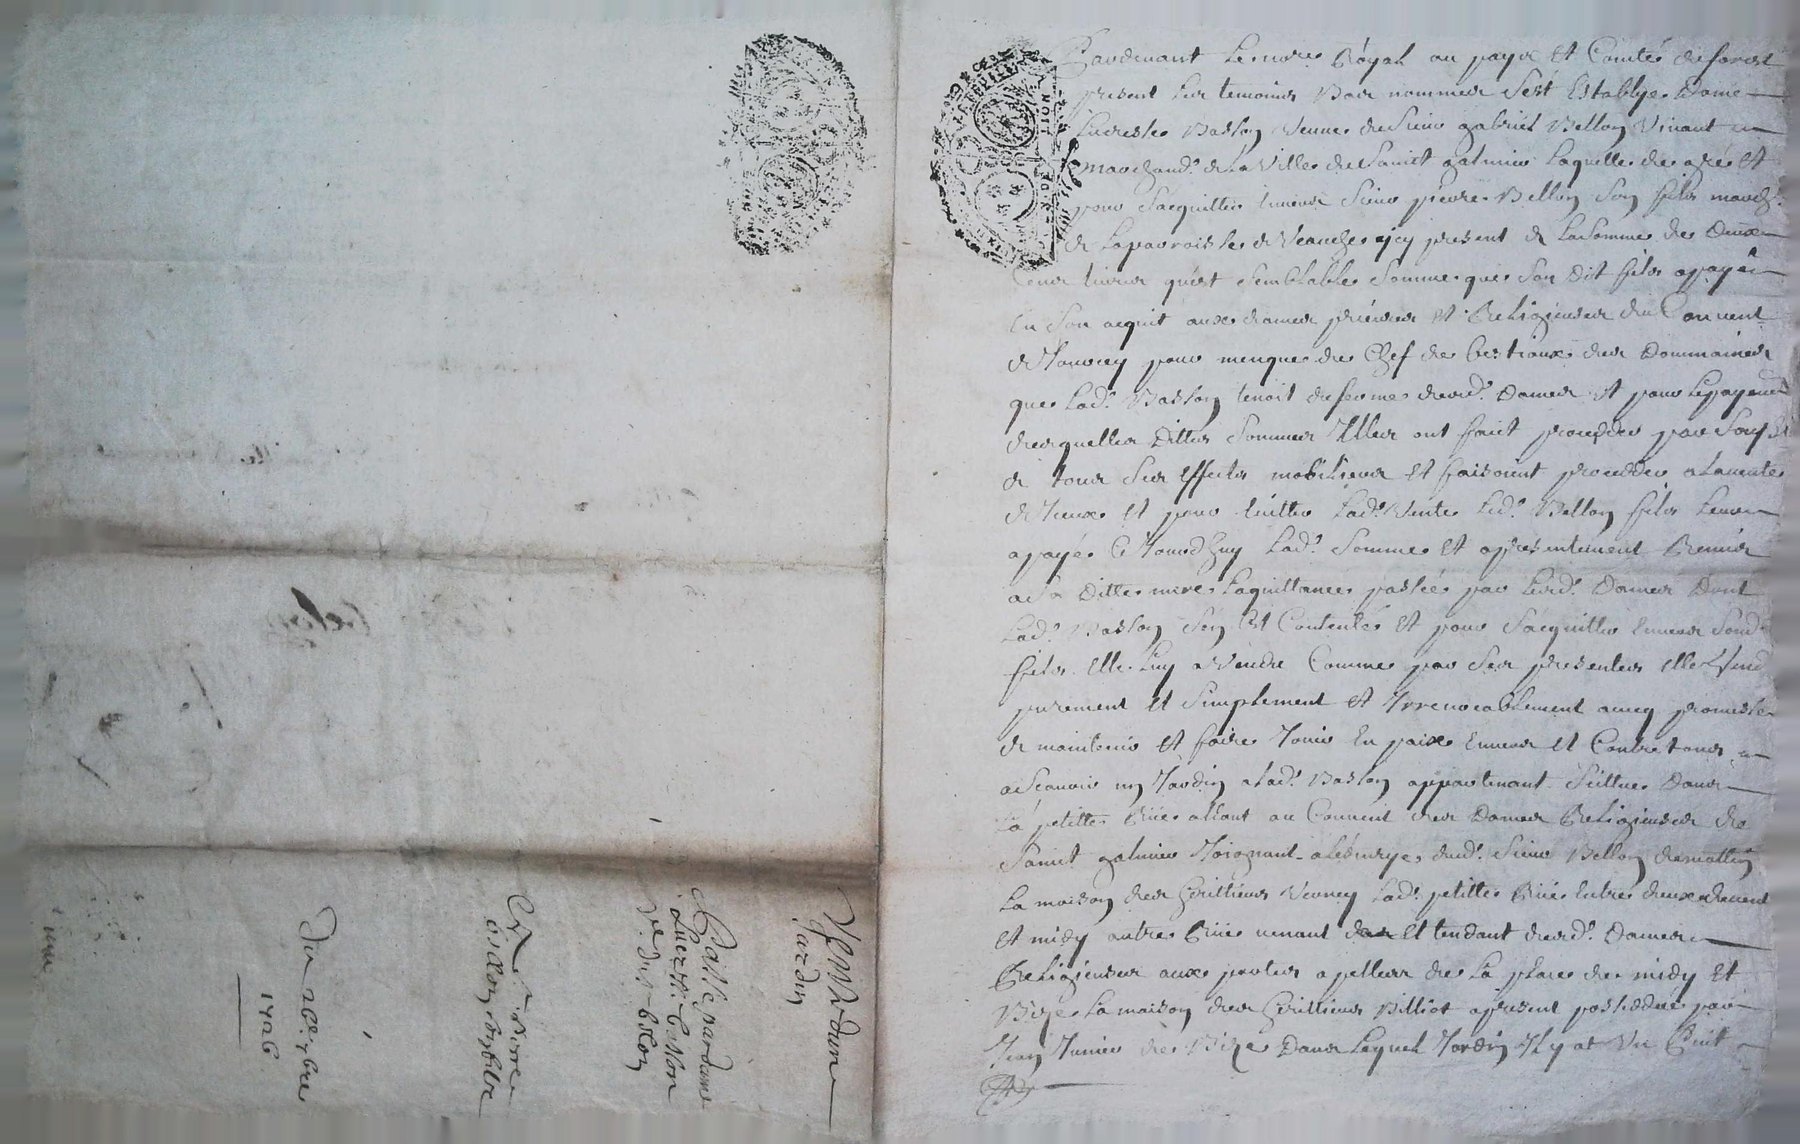 Pardevant le nore Royal au pays et Comté de forest
present les temoins bas nommes s'est Establye dame
Lucresse Basson veuve de sieur gabriel Bellon vivant
marchand de la Ville de sainct galmier laquelle de gré et
pour s'acquitter envers sieur pierre Bellon son fils march.
de la parroisse de Veauche icy present de la somme de deux
Cens livres qu'est semblable somme que son dit fils a payé
En son acquit aux dames prieures et Religieuses du Convent
de Jourcey pour menque de Chef de bestiaux des Dommaines
que lad. Basson tenoit de ferme desd. Dames et pour le payement
desquelles dittes sommes Illes ont faict proceder par
de tous ses Effects mobiliers et faisoient proceder a la vente
d'Iceux et pour Eviter lad. Vente led. Bellon fils leur
a payé Ce Jourdhuy lad. somme et apresentement Remis
a sa ditte mere la quittance passée par lesd. Dames Dont
lad. Basson s'en est Contentée et pour s'acquitter Envers sond.
fils Elle luy a vendu Comme par ses presentes elle Vend
purement et simplement et Irrevocablement avec promesse
de maintenir et faire Jouir En paix Envers et Contre tous
a scavoir un Jardin a lad. Basson appartenant scittué Dans
la petitte Rue allant au Convent des Dames Religieuses de
Sainct galmier Joignant dud. sieur Bellon de matin
la maison des herittiers Verney lad. petitte Rue Entre deux
et midy autre Rue venant et tendant desd. Dames
Religieuses aux portes apellees de la place de midy et
Bize la maison des herittiers Billiot apresent possedée par
Jean Junier de Bize Dans lequel Jardin Il y at Un Puit
Vente dune
Jardin
Passe par dame
Lucresse Basson
ve. du sr. Bellon
A sr. pierre
Bellon son fils
Du 26e 7bre
1726